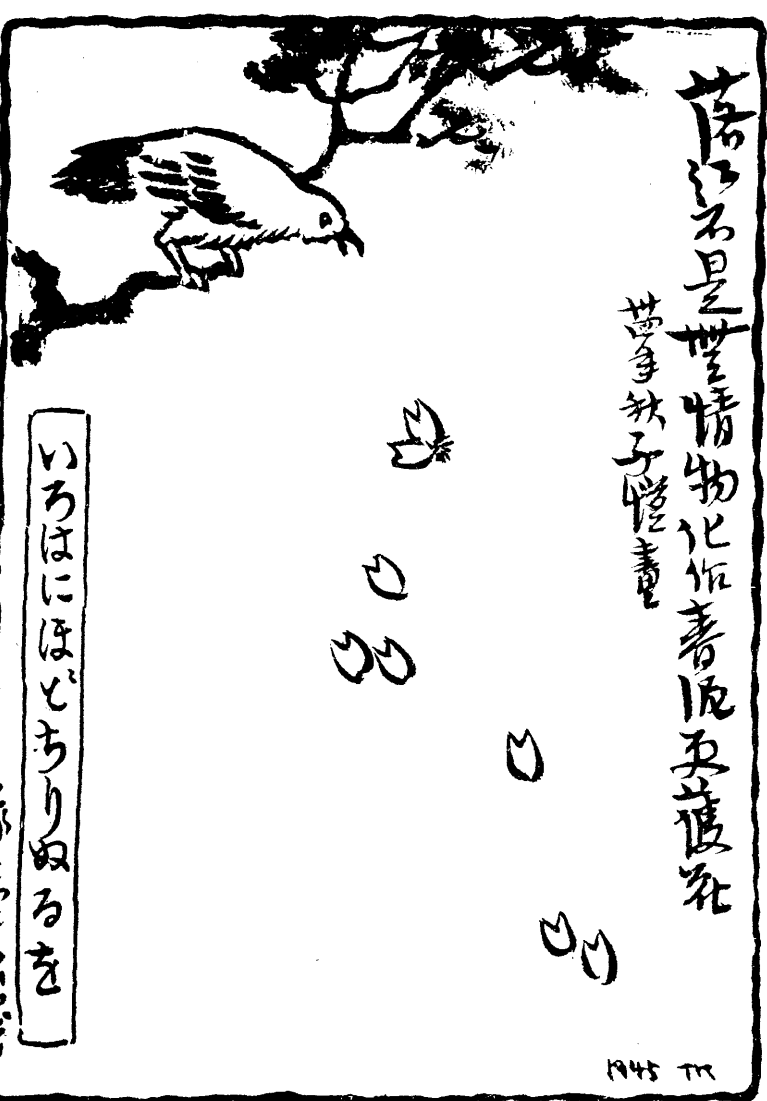 落紅不是無情物化作春泥更護花
卅四年秋子愷畫
いろはにほどちりぬるを
1945 TK